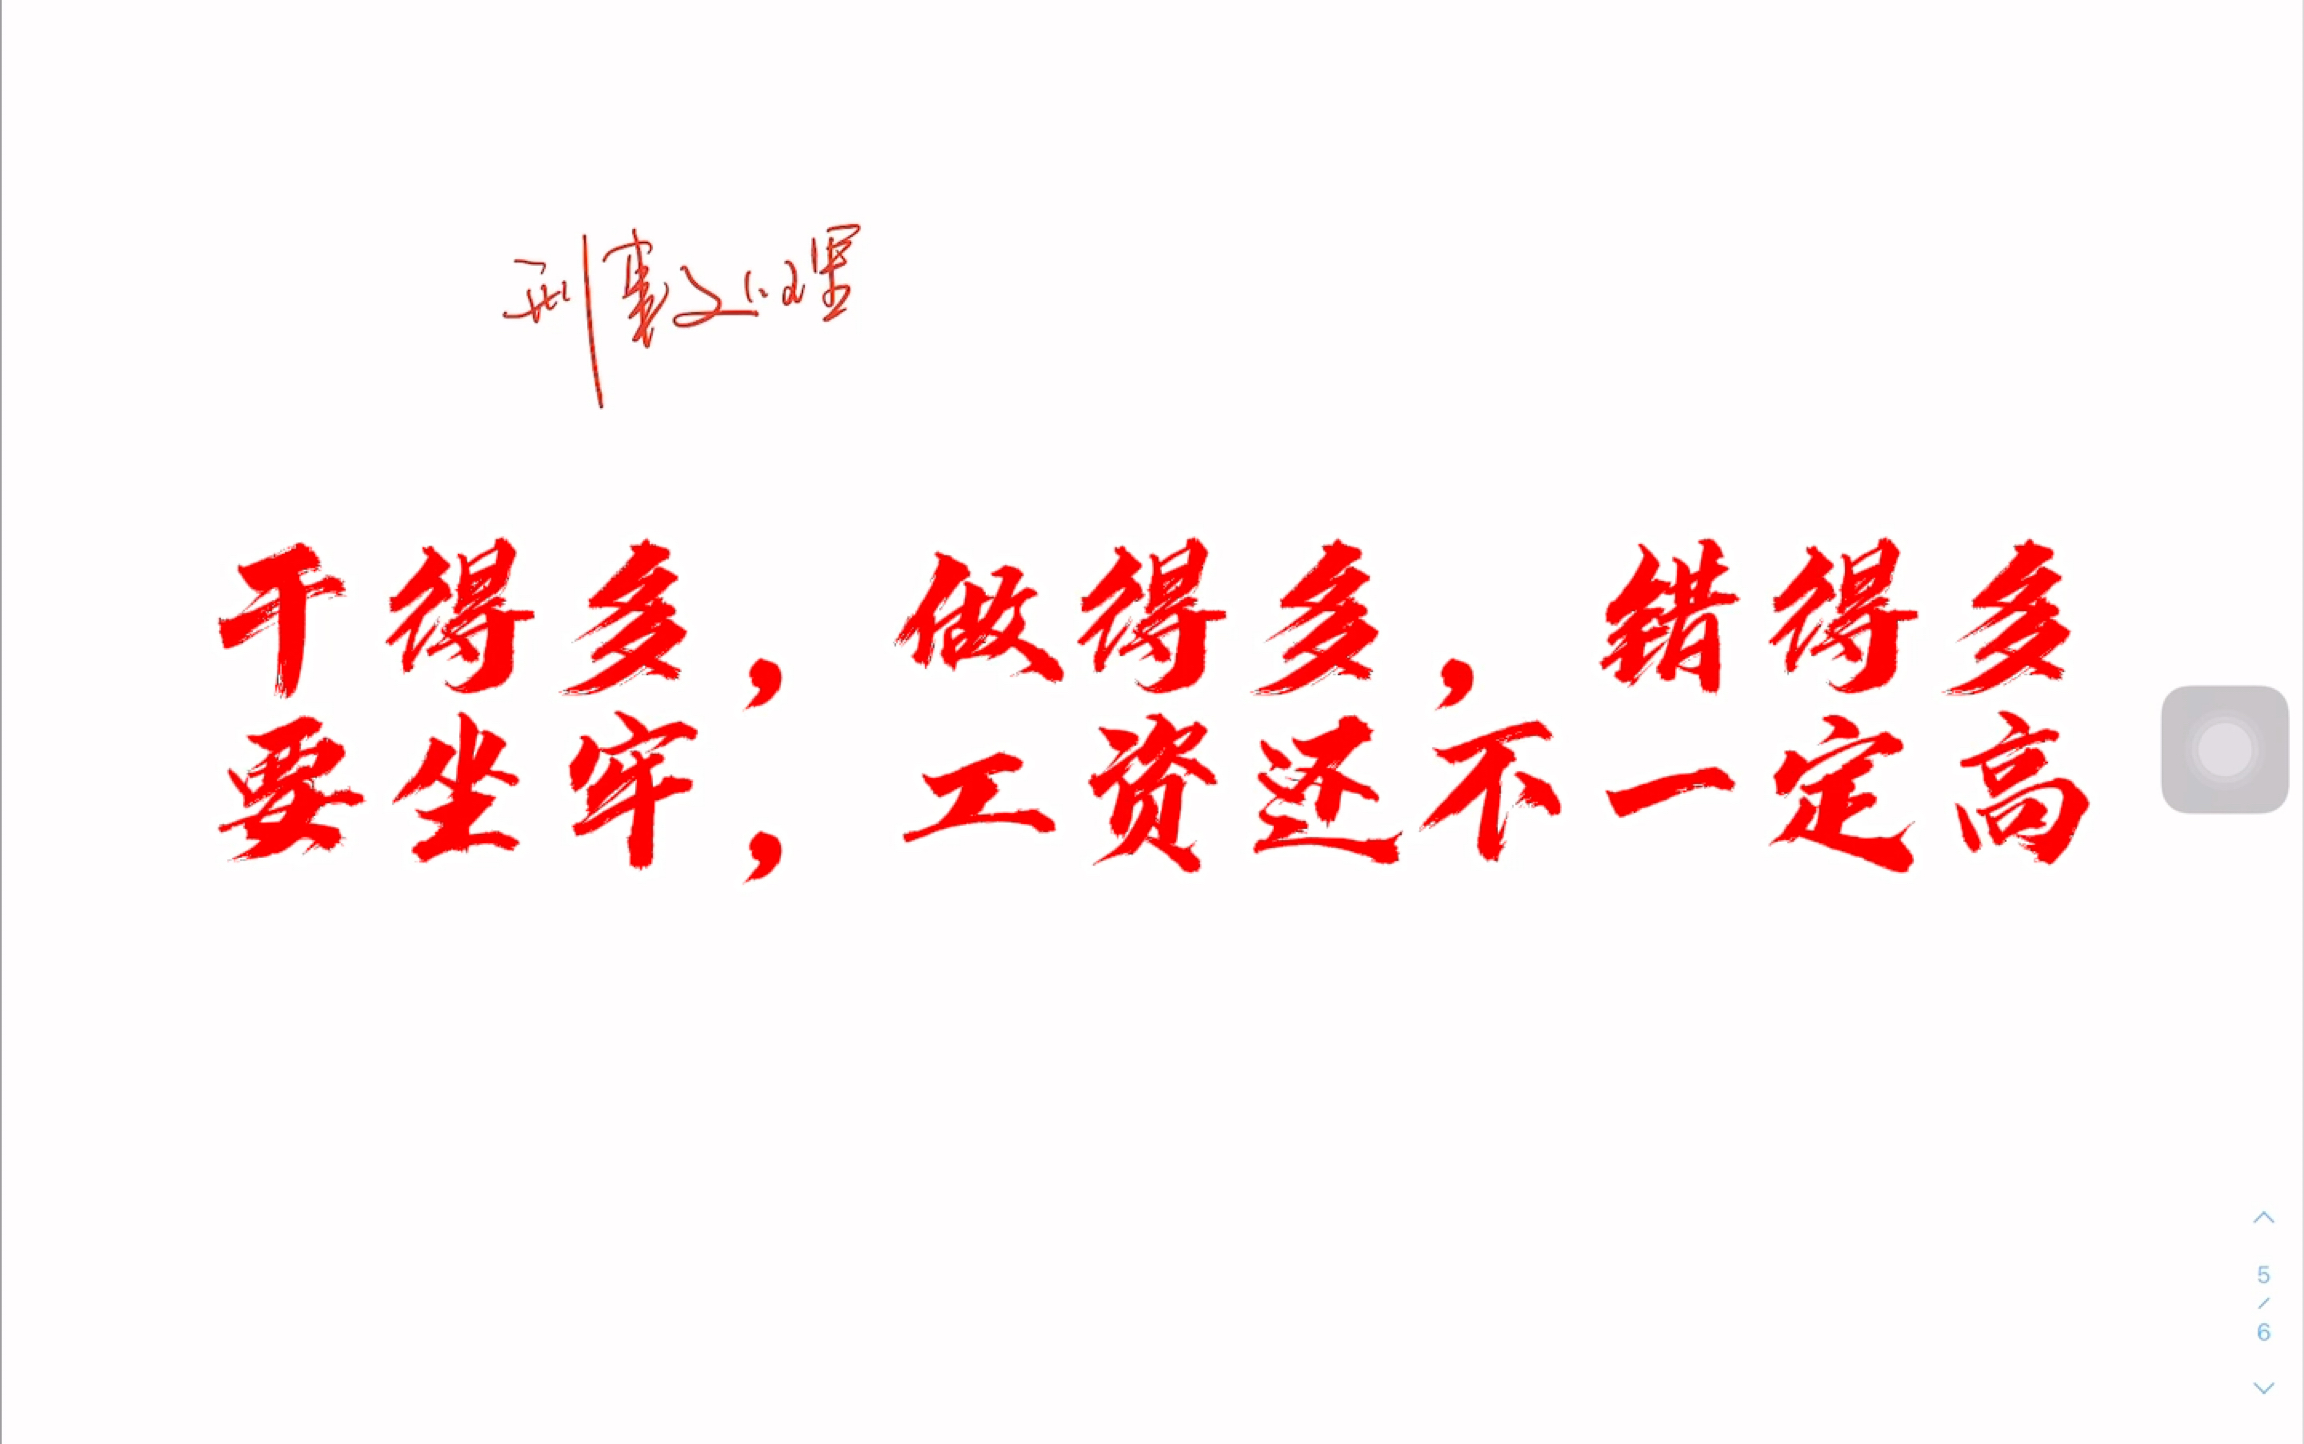 干得多，做得多，错得多
要坐牢，工资还不一定高
5
/
6